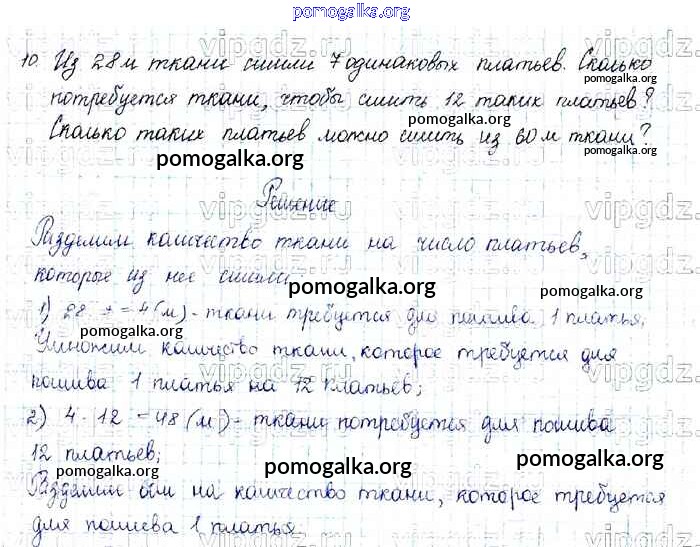 pomogalka.org
10. Из 28 м ткани сшили 7 одинаковых платьев. Сколько
pomogalka.org
потребуется ткани, чтобы сшить 12 таких платьев?
Сколько таких платьев можно сшить из 60 м ткани?
pomogalka.org pomogalka.org
Решение
Разделим количество ткани на число платьев,
которые из нее сшили
pomogalka.org pomogalka.org
1) 28 : = 4 (м) - ткани требуется для пошива 1 платья;
pomogalka.org
Умножим количество ткани, которое требуется для
пошива 1 платья на 12 платьев;
pomogalka.org
2) 4 · 12 = 48 (м) - ткани потребуется для пошива
12 платьев;
pomogalka.org pomogalka.org pomogalka.org
Разделим 60м на количество ткани, которое требуется
для пошива 1 платья.
pomogalka.org